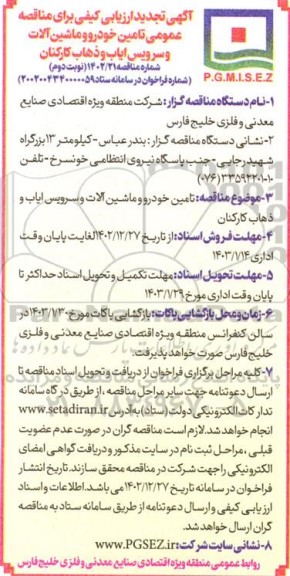 آگهی تجدید ارزیابی کیفی برای مناقصه
عمومی تامین خودرو و ماشین آلات
و سرویس ایاب و ذهاب کارکنان
شماره مناقصه ۱۴۰۲/۲۱ (نوبت دوم)
(شماره فراخوان در سامانه ستاد ۲۰۰۲۰۰۴۳۴۰۰۰۰۰۵۹)
P.G.M.I.S.E.Z
۱-نام دستگاه مناقصه گزار: شرکت منطقه ویژه اقتصادی صنایع
معدنی و فلزی خلیج فارس
۲-نشانی دستگاه مناقصه گزار: بندرعباس-کیلومتر ۱۳ بزرگراه
شهید رجایی-جنب پاسگاه نیروی انتظامی خونسرخ-تلفن
(۰۷۶) ۳۳۵۹۲۲۰۱-۱۰
۳-موضوع مناقصه: تامین خودرو و ماشین آلات و سرویس ایاب و
ذهاب کارکنان
۴-مهلت فروش اسناد: از تاریخ ۱۴۰۲/۱۲/۲۷ لغایت پایان وقت
اداری ۱۴۰۳/۷/۱۴
۵-مهلت تحویل اسناد: مهلت تکمیل و تحویل اسناد حداکثر تا
پایان وقت اداری مورخ ۱۴۰۳/۷/۲۹
۶-زمان و محل بازگشایی پاکات: بازگشایی پاکات مورخ ۱۴۰۳/۷/۳۰ در
سالن کنفرانس منطقه ویژه اقتصادی صنایع معدنی و فلزی
خلیج فارس صورت خواهد پذیرفت.
۷-کلیه مراحل برگزاری فراخوان از دریافت و تحویل اسناد مناقصه تا
ارسال دعوتنامه جهت سایر مراحل مناقصه، از طریق درگاه سامانه
تدارکات الکترونیکی دولت (ستاد) به آدرس www.setadiran.ir
انجام خواهد شد. لازم است مناقصه گران در صورت عدم عضویت
قبلی، مراحل ثبت نام در سایت مذکور و دریافت گواهی امضای
الکترونیکی را جهت شرکت در مناقصه محقق سازند. تاریخ انتشار
فراخوان در سامانه تاریخ ۱۴۰۲/۱۲/۲۷ می باشد. اطلاعات و اسناد
ارزیابی کیفی و ارسال دعوتنامه از طریق سامانه ستاد به مناقصه
گران ارسال خواهد شد.
۸-نشانی سایت شرکت: www.PGSEZ.ir
روابط عمومی منطقه ویژه اقتصادی صنایع معدنی و فلزی خلیج فارس